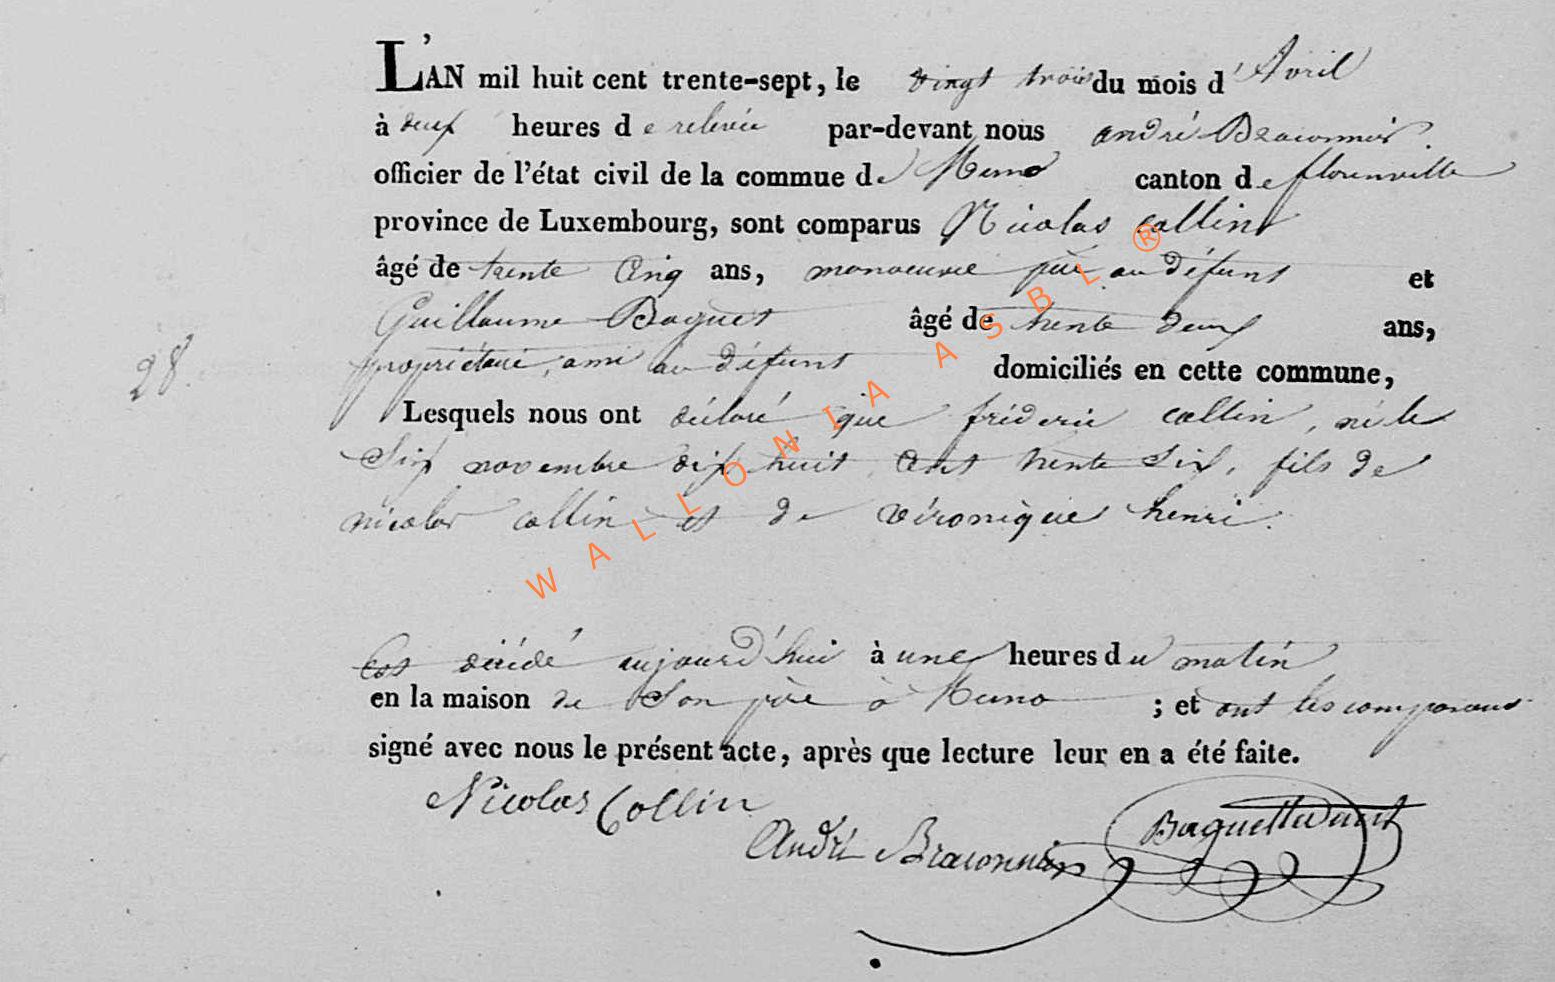 L'AN mil huit cent trente-sept, le vingt trois du mois d'Avril
à deux heures de relevée par-devant nous andré Braconnier
officier de l'état civil de la commue de Muno canton de florenville
province de Luxembourg, sont comparus Nicolas collin
âgé de trente Cinq ans, manoeuvre père au défunt et
Guillaume Baguet âgé de trente deux ans,
propriétaire, ami au défunt domiciliés en cette commune,
28.
Lesquels nous ont déclaré que fréderic collin, né le
Six novembre dix huit Cent trente Six, fils de
nicolas collin et de véronique henri.
Est décédé aujourd'hui à une heures du matin
en la maison de Son père à Muno ; et ont les comparans
signé avec nous le présent acte, après que lecture leur en a été faite.
Nicolas Collin
André Braconnier
WALLONIA ASBL ®